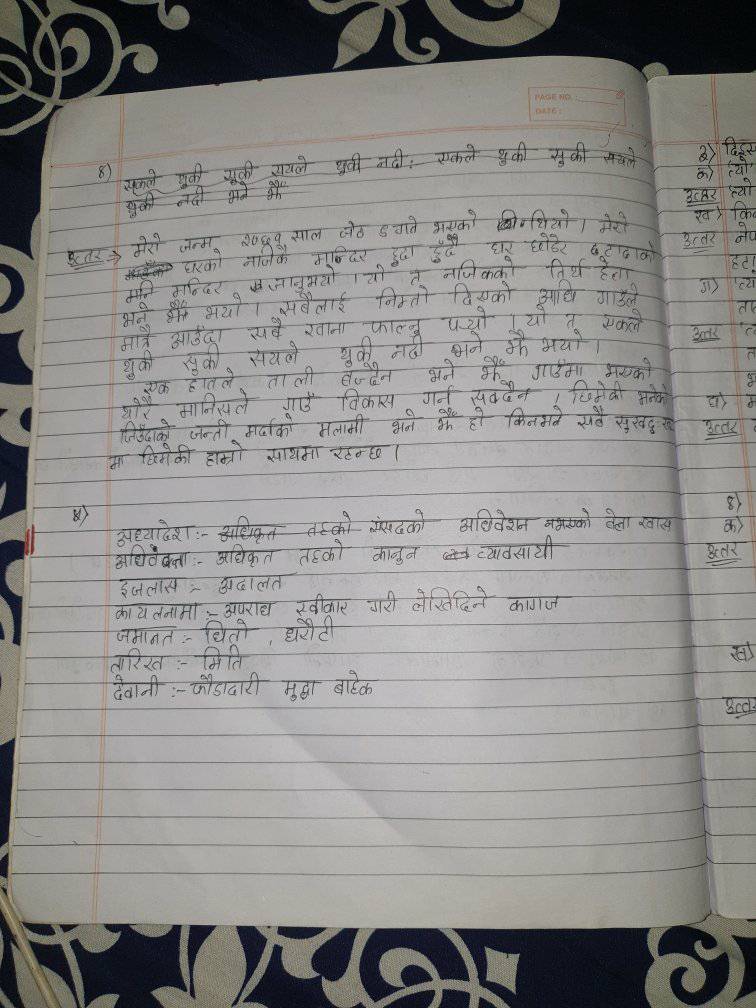 PAGE NO. :
DATE :
४) एकले थुकी सुकी सयले थुकी नदी : एकले थुकी सुकी सयले
थुकी नदी भने झैँ
उत्तर → मेरो जन्म २०६१ साल जेठ ८ गते भएको थियो । मेरो
घरको नजिकै मन्दिर हुदा हुँदै घर छोडेर टाढाको
मन्दिर जानुभयो । यो त नजिकको तिर्थ हेला
भने झैँ भयो । सबैलाई निम्तो दिएको आधि गाउँले
मात्रै आउँदा सबै खाना फाल्नु पर्‍यो । यो त एकले
थुकी सुकी सयले थुकी नदी भने झैँ भयो ।
एक हातले ताली बज्दैन भने झैँ गाउँमा भएको
थोरै मानिसले गाउँ विकास गर्न सक्दैन । छिमेकी भनेको
जिउँदाको जन्ती मर्दाको मलामी भने झैँ हो किनभने सबै सुख दुःख
मा छिमेकी हाम्रो साथमा रहन्छ ।
५)
अध्यादेश :- अधिकृत तहको संसदको अधिवेशन नभएको बेला खास
अधिवक्ता :- अधिकृत तहको कानुन व्यावसायी
इजलास :- अदालत
कायलनामा :- अपराध स्वीकार गरी लेखिदिने कागज
जमानत :- धितो , धरौटी
तारिख :- मिति
देवानी :- फौडादारी मुद्दा बाहेक
२)
क) त्यो
उत्तर त्यो
ख) कि
उत्तर
ग)
उत्तर
घ)
उत्तर
४)
क)
उत्तर
ख)
उत्तर